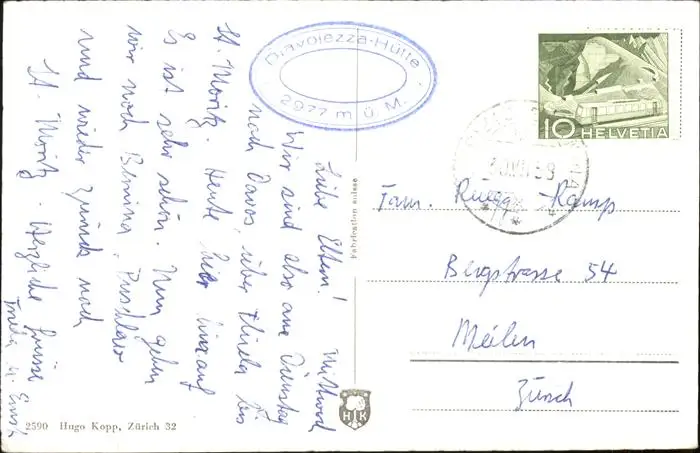 Mittwoch
Liebe Eltern!
Wir sind also am Dienstag
nach Davos, über Thusis bis
St. Moritz. Heute hier hinauf
Es ist sehr schön. Nun gehen
wir noch Bernina, Puschlav
und wieder zurück nach
St. Moritz. Herzliche Grüsse
Diavolezza-Hütte
2977 m ü. M.
10 HELVETIA
Fabrication suisse
Fam. Ruegg-Kamp
Bergstrasse 54
Meilen
Zürich
HK
2590 Hugo Kopp, Zürich 32